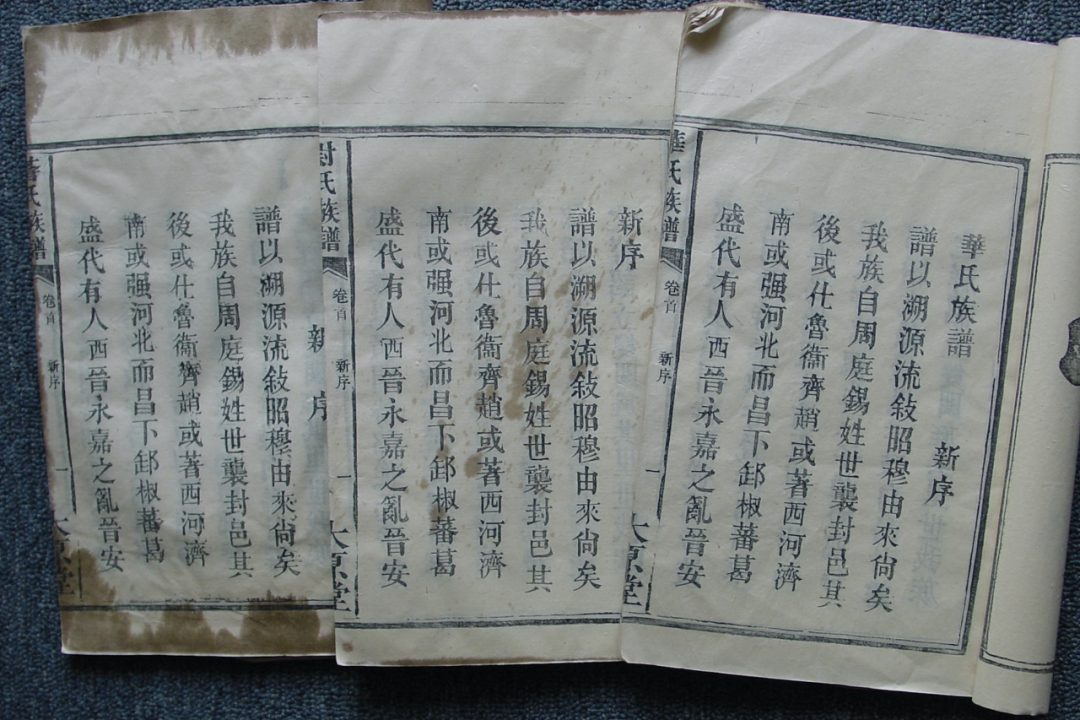 華氏族譜
新序
譜以溯源流敍昭穆由來尙矣
我族自周庭錫姓世襲封邑其
後或仕魯衞齊趙或著西河濟
南或强河北而昌下邳椒蕃葛
盛代有人西晉永嘉之亂晉安
華氏族譜
卷首
新序
一
太原堂
新序
譜以溯源流敍昭穆由來尙矣
我族自周庭錫姓世襲封邑其
後或仕魯衞齊趙或著西河濟
南或强河北而昌下邳椒蕃葛
盛代有人西晉永嘉之亂晉安
氏族譜
卷首
新序
一
太原堂
新序
譜以溯源流敍昭穆由來尙矣
我族自周庭錫姓世襲封邑其
後或仕魯衞齊趙或著西河濟
南或强河北而昌下邳椒蕃葛
盛代有人西晉永嘉之亂晉安
氏族譜
卷首
新序
一
太原堂